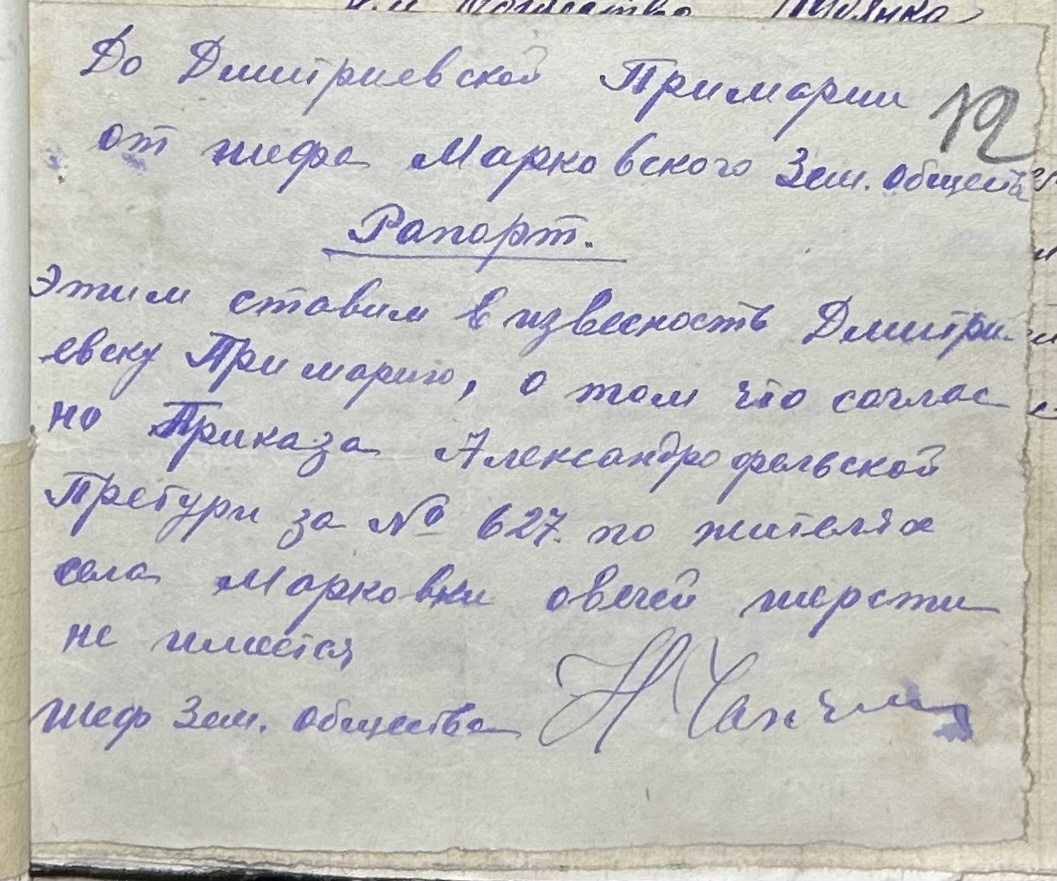 До Дмитриевской Примарии
12
от шефа Марковского Зем. общества
Рапорт.
Этим ставим в извесность Дмитри-
евску Примарию, о том что соглас
но Приказа Александрофельской
Претури за № 627. по жителях
села Марковки овечей шерсти
не имеется
шеф Зем. общества Н